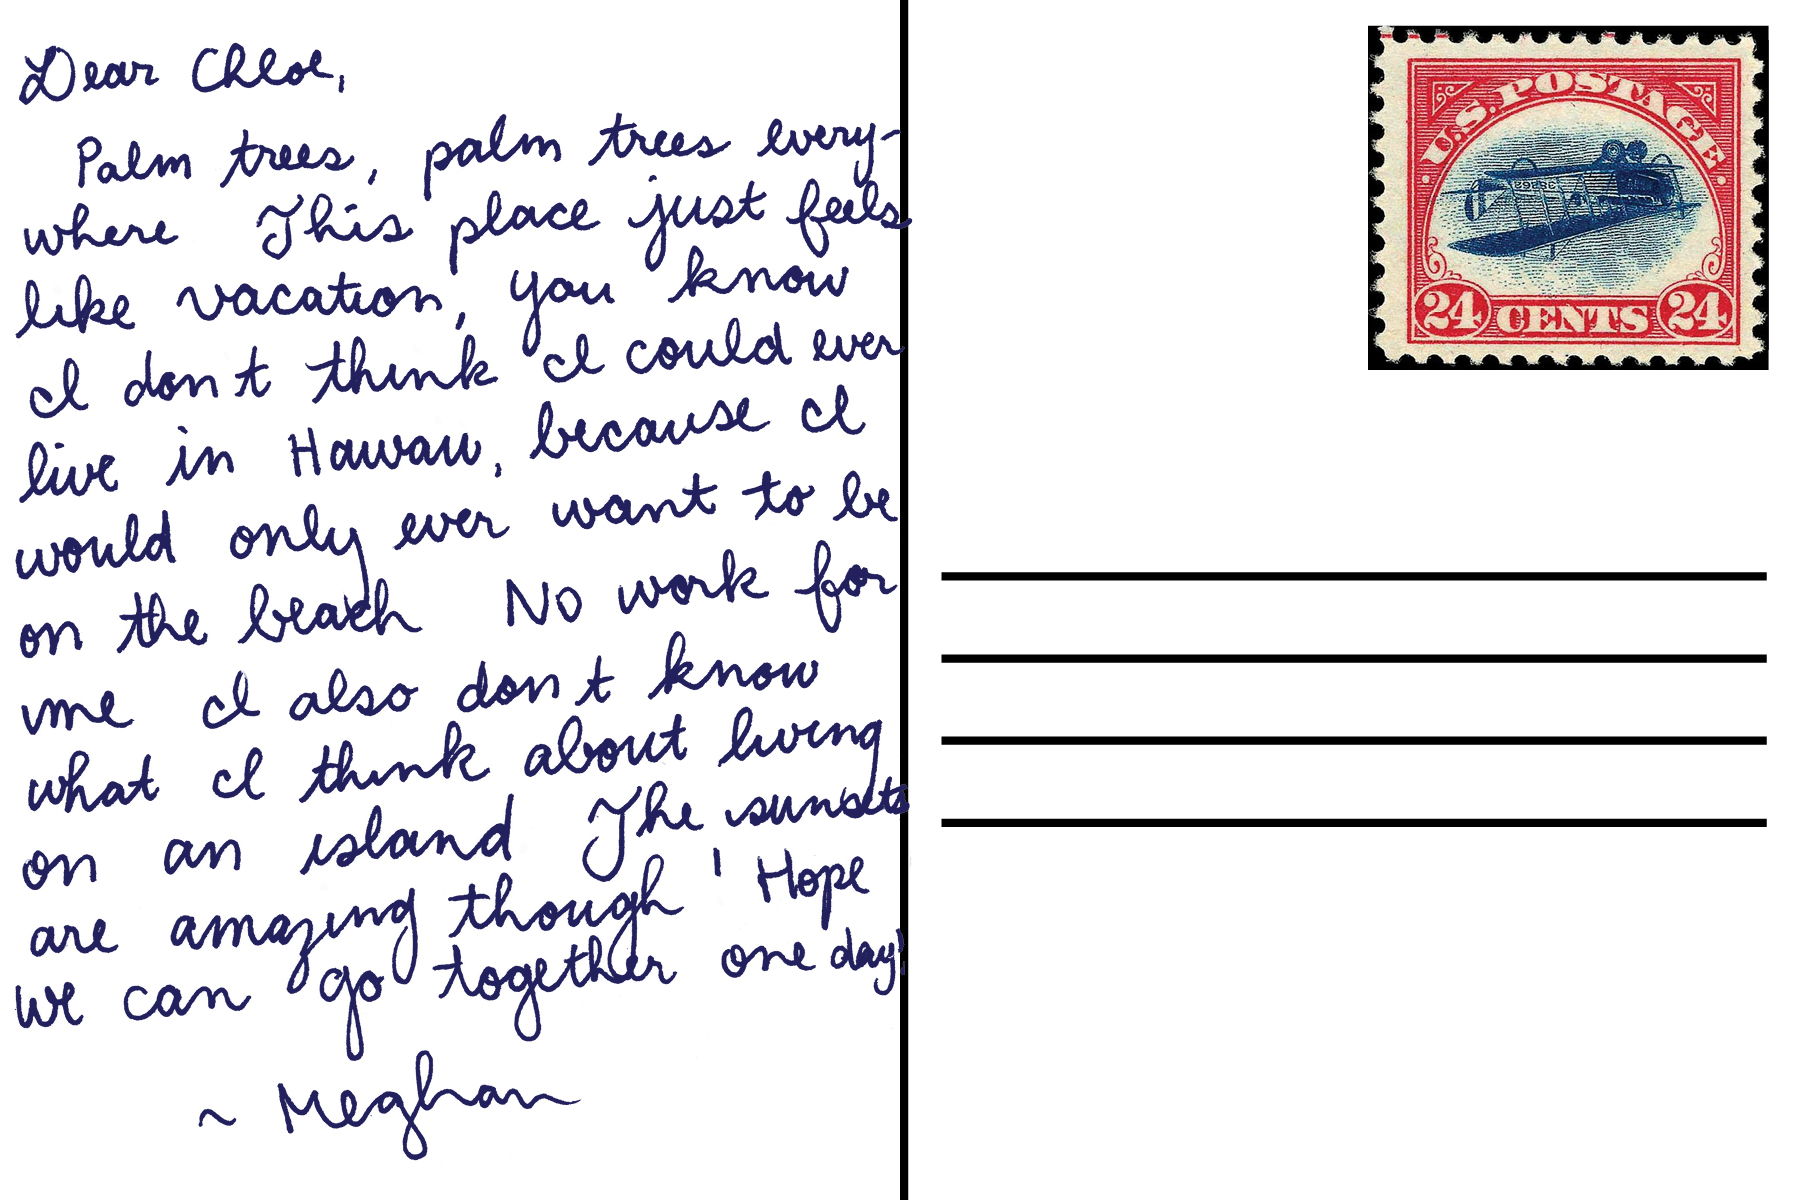 Dear Chloe,
Palm trees, palm trees every-
where This place just feels
like vacation, you know
I don t think I could ever
live in Hawaii, because I
would only ever want to be
on the beach No work for
me I also don t know
what I think about living
on an island The sunsets
are amazing though ' Hope
we can go together one day!
~ Meghan
U.S. POSTAGE
24 CENTS 24